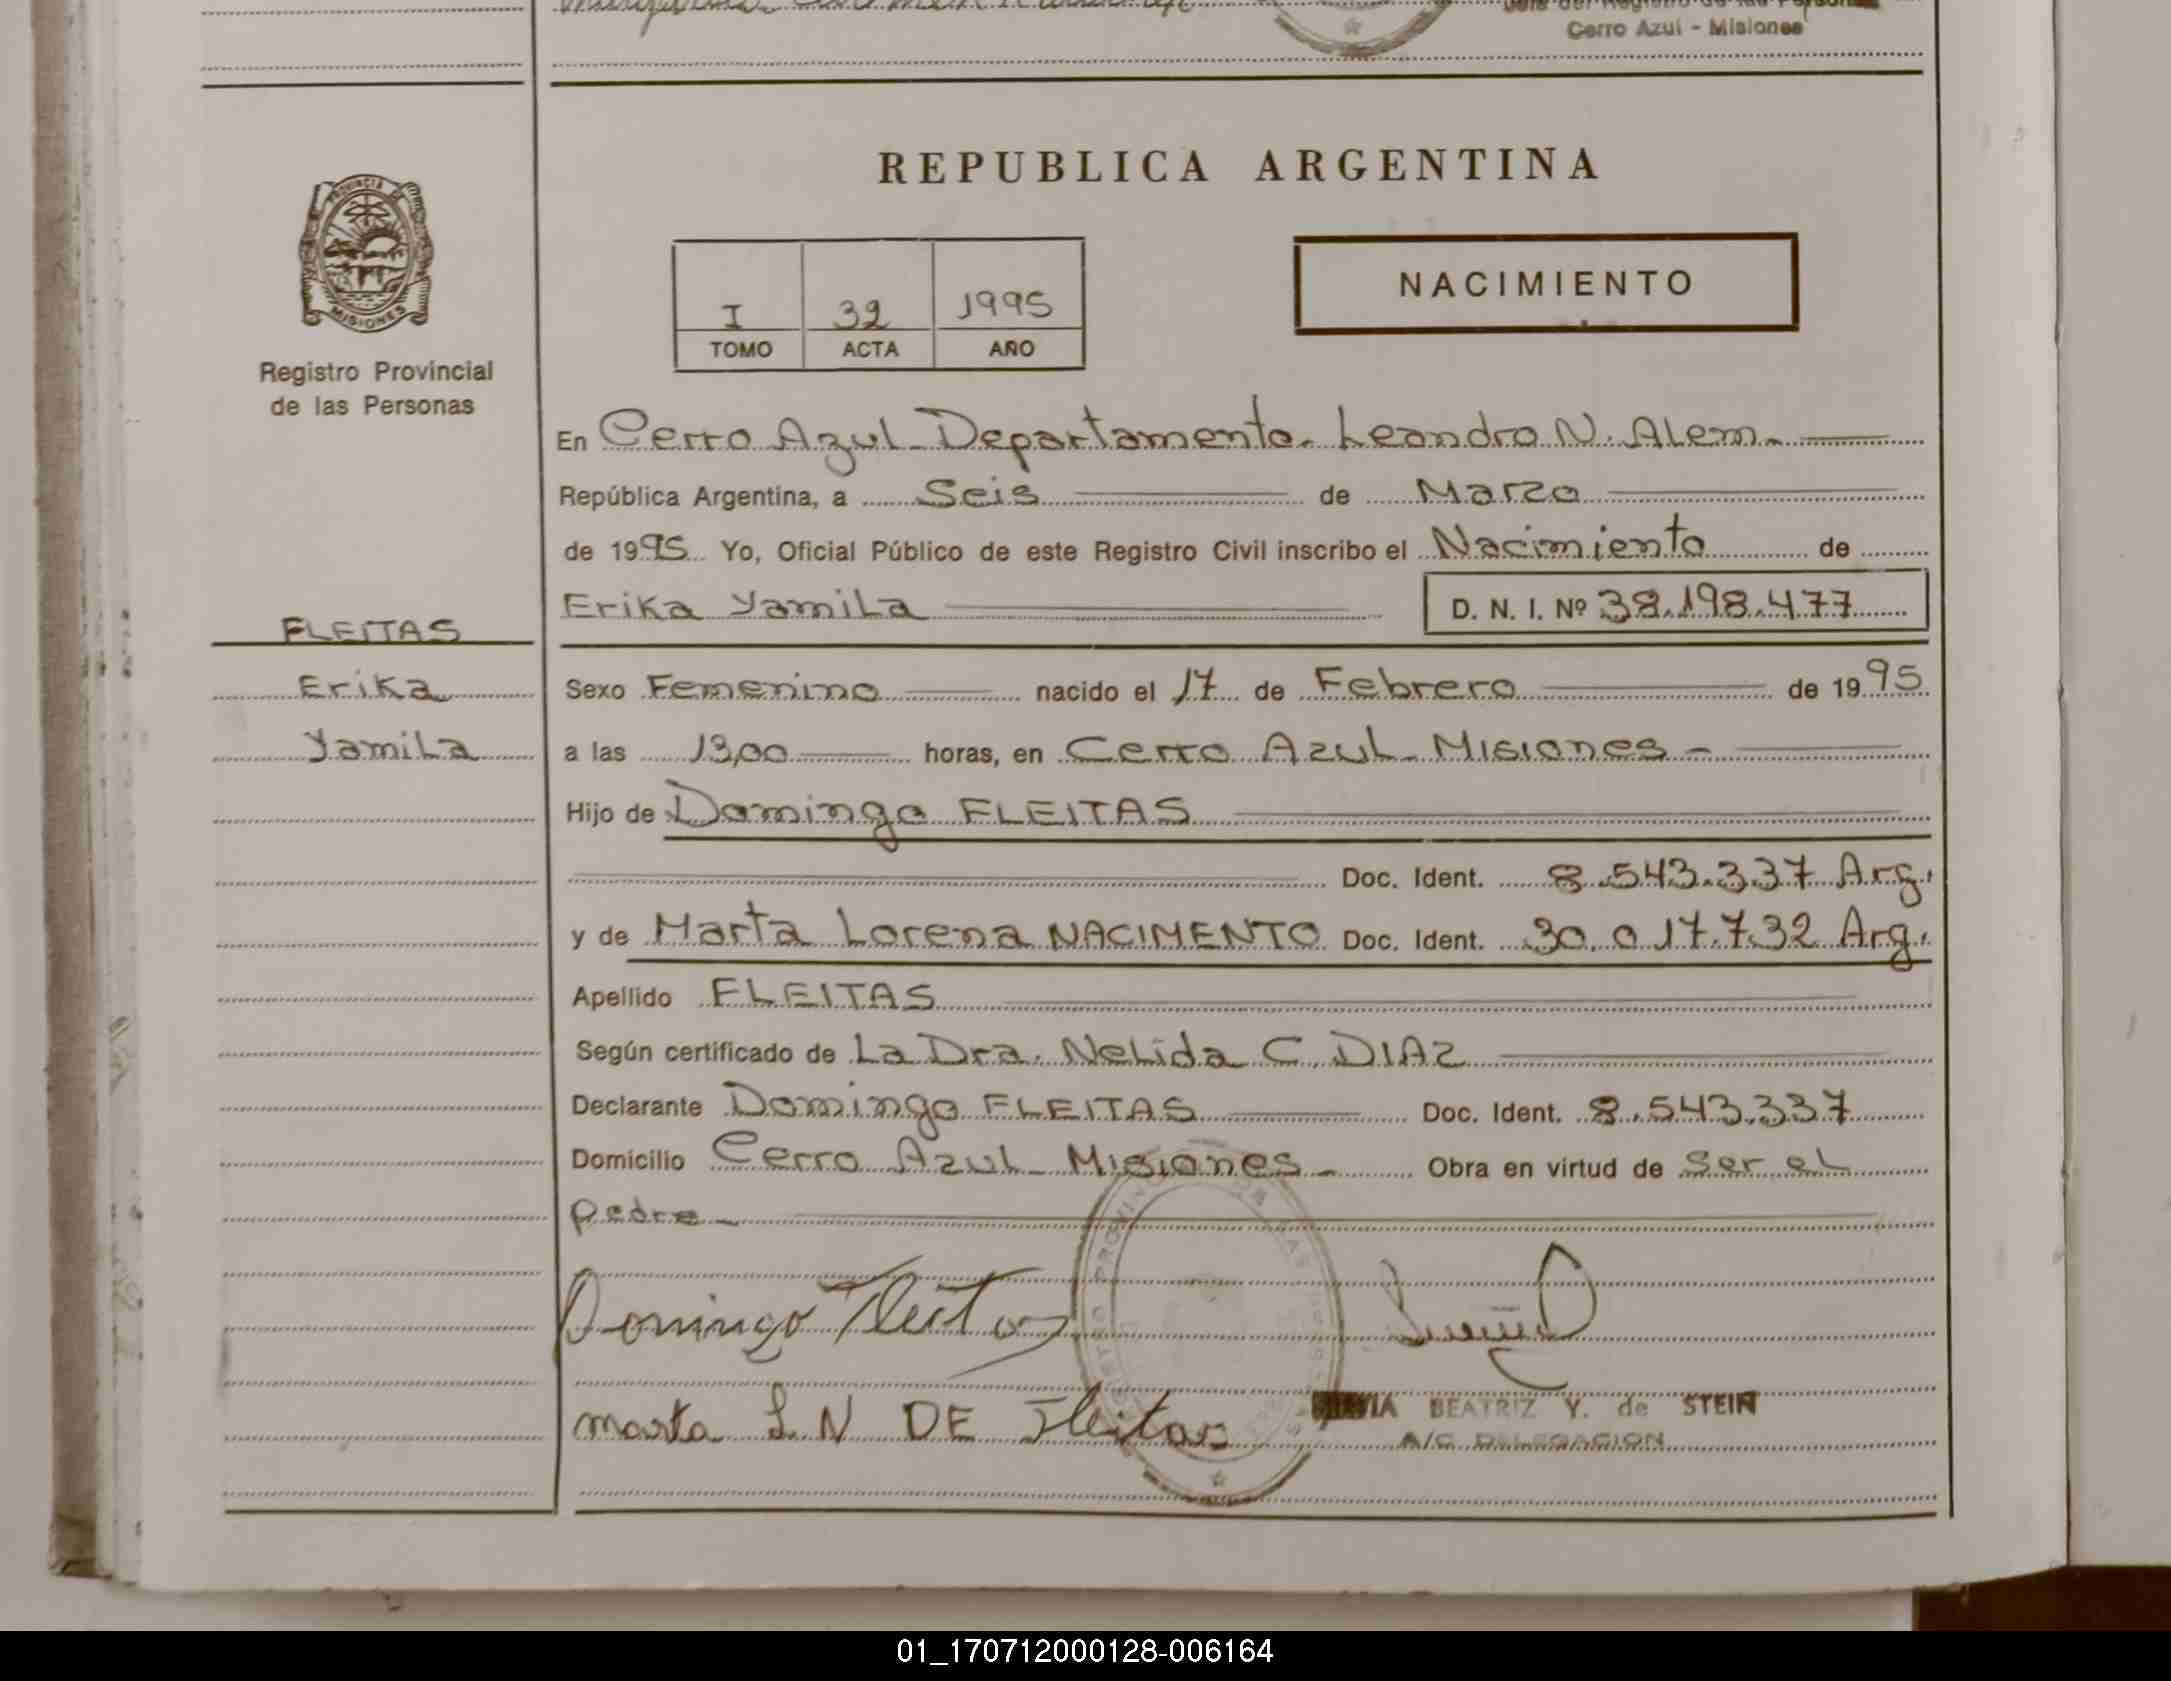 Cerro Azul - Misiones
PROVINCIA DE
MISIONES
Registro Provincial
de las Personas
REPUBLICA ARGENTINA
NACIMIENTO
I 32 1995
TOMO ACTA AÑO
En Cerro Azul - Departamento - Leandro N. Alem -
República Argentina, a Seis de Marzo
de 1995 Yo, Oficial Público de este Registro Civil inscribo el Nacimiento de
Erika Yamila D. N. I. Nº 38.198.477
FLEITAS
Erika
Yamila
Sexo Femenino nacido el 17 de Febrero de 1995
a las 13,00 horas, en Cerro Azul - Misiones -
Hijo de Domingo FLEITAS
Doc. Ident. 8.543.337 Arg.
y de Marta Lorena NACIMENTO Doc. Ident. 30.017.732 Arg.
Apellido FLEITAS
Según certificado de La Dra. Nelida C. DIAZ
Declarante Domingo FLEITAS Doc. Ident. 8.543.337
Domicilio Cerro Azul - Misiones - Obra en virtud de ser el
padre -
Domingo Fleitas
marta L. N DE Fleitas
BEATRIZ Y. de STEIN
A/C DELEGACION
01_170712000128-006164